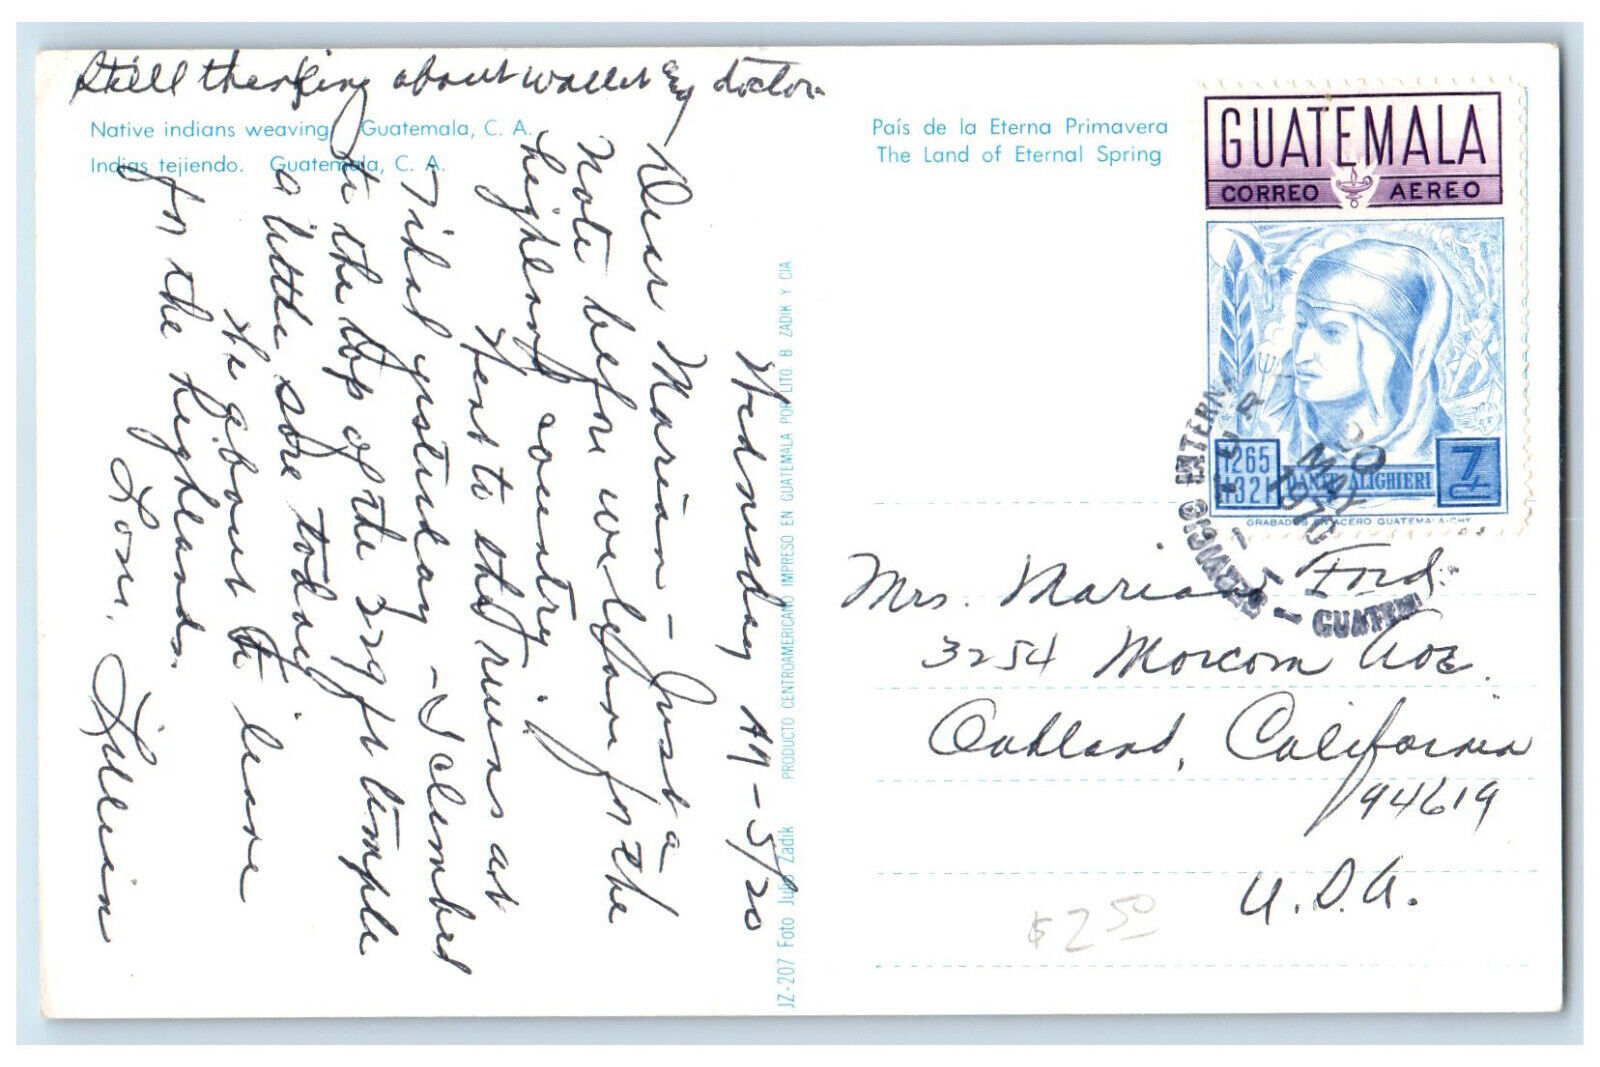 Still thanking about wallet my doctor
Native indians weaving. Guatemala, C. A.
Indias tejiendo. Guatemala, C. A.
País de la Eterna Primavera
The Land of Eternal Spring
Wednesday AM - 5/20
Dear Marian - Just a
note before we leave for the
highland country.
Went to the ruins at
Tikal yesterday - I climbed
to the top of the 229 ft temple
a little sore today
We about to leave
for the highlands.
Love, Lillian
JZ-207 Foto Julio Zadik PRODUCTO CENTROAMERICANO IMPRESO EN GUATEMALA POR LITO. B ZADIK Y CIA
GUATEMALA
CORREO AEREO
1265
1321
DANTE ALIGHIERI
7
GRABADOS EN ACERO GUATEMALA-CHY
20 MAY
197
Mrs. Marian Ford
3254 Morcom Ave.
Oakland, California
94619
U.S.A.
$2 50